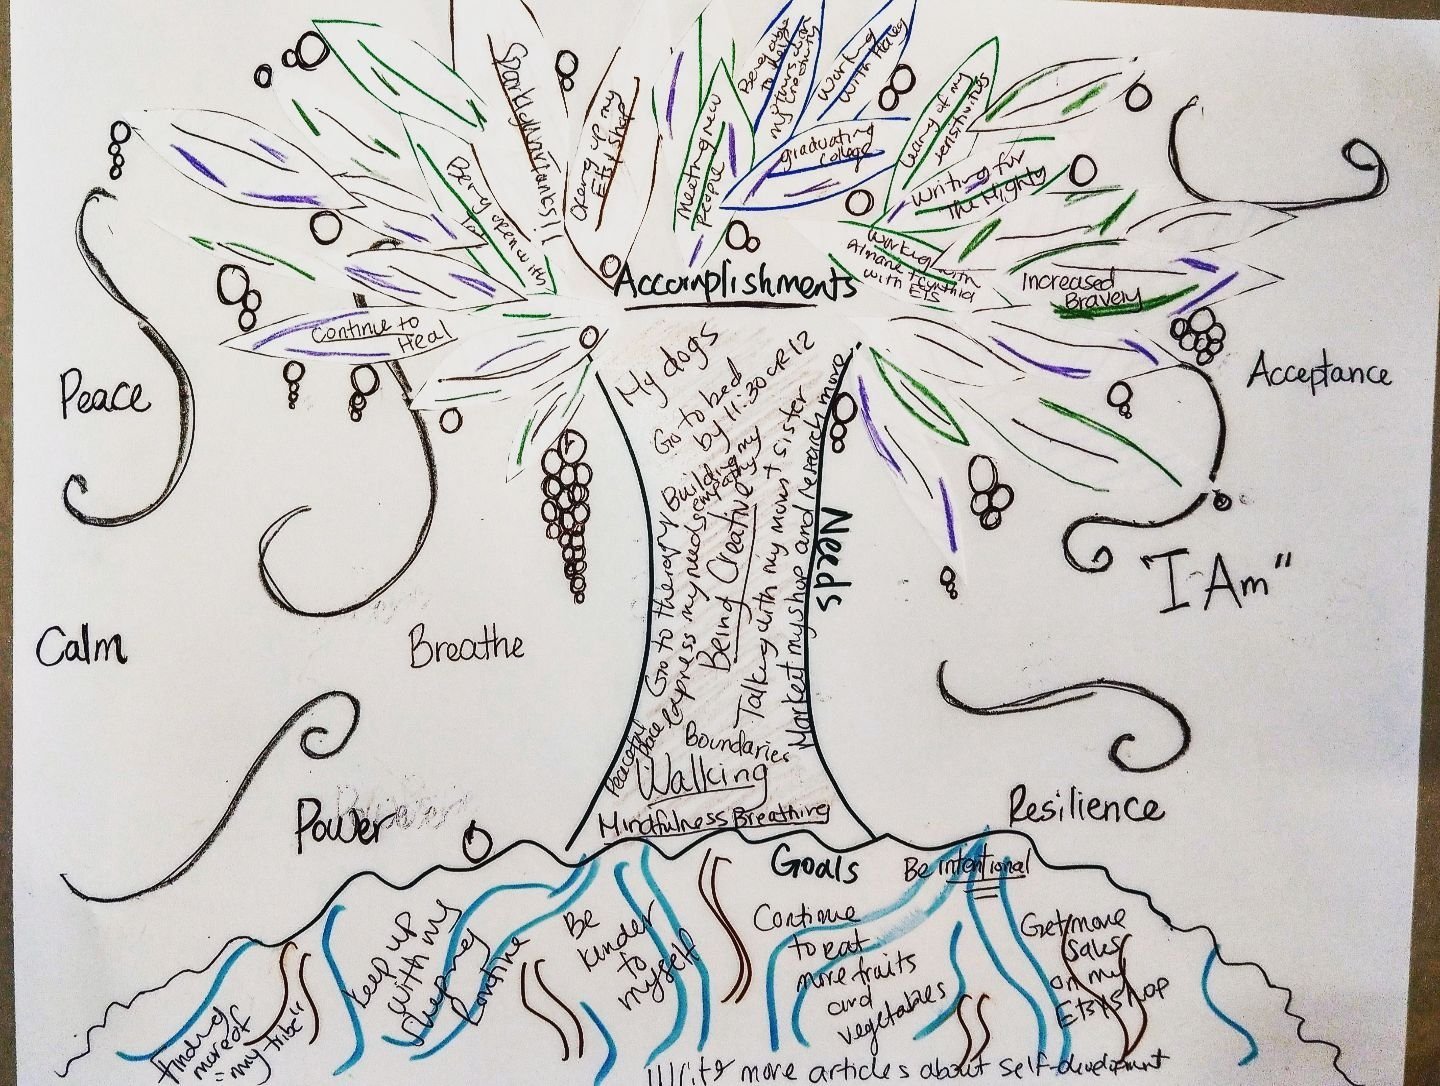 Sparklyvarianks!!
Opening up my
Etsy Shop
Meeting new
People
Being able
to help
my tours with
Creativity
Working
with Haley
graduating
college
Leary of my
sensitivities
Writing for
The Mighty
Being open with
Working with
Almane + Cynthia
with ETS
Increased
Bravery
Continue to
Heal
Accomplishments
My dogs
Go to bed
by 11:30 or 12
Building my
empathy
Go to therapy
express my needs
Being Creative
Talking with my mom + sister
Market my shop and research more
Needs
Peaceful
place
Boundaries
Walking
Mindfulness Breathing
Peace
Acceptance
"I Am"
Calm
Breathe
Power
Resilience
Goals
Be intentional
Finding
more of
"my tribe"
Keep up
with my
sleeping
Routine
Be
kinder
to
myself
Continue
to eat
more fruits
and
vegetables
Get more
sales
on my
Etsy Shop
Write more articles about self-development